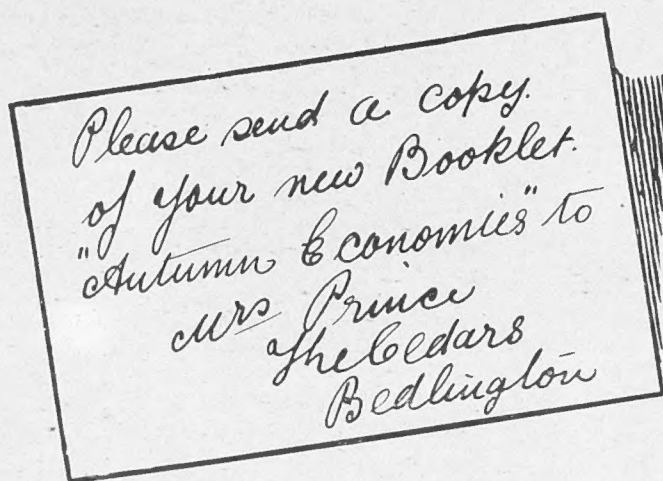 Please send a copy.
of your new Booklet.
"Autumn Economies" to
Mrs Prince
The Cedars
Bedlington